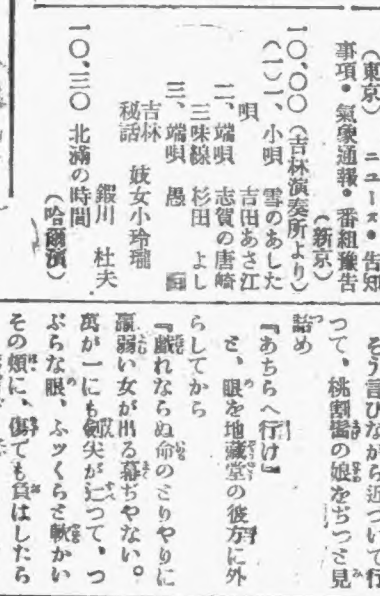 （東京） ニユース・告知
事項・氣象通報・番組豫告
（新京）
一〇、〇〇（吉林演奏所より）
（一）一、小唄 雪のあした
唄 吉田あさ江
二、端唄 志賀の唐崎
三味線 杉田 よし
三、端唄 愚
吉林
秘話 妓女小玲瓏
鍜川 杜夫
一〇、三〇 北滿の時間
（哈爾濱）
そう言ひながら近づいて行
つて、桃割髷の娘をぢつと見
詰め
『あちらへ行け』
と、眼を地藏堂の彼方に外
らしてから
『戯れならぬ命のとりやりに
羸弱い女が出る幕ぢやない。
萬が一にも劍尖が辷つて、つ
ぶらな眼、ふツくらと軟かい
その頬に、傷でも負はしたら